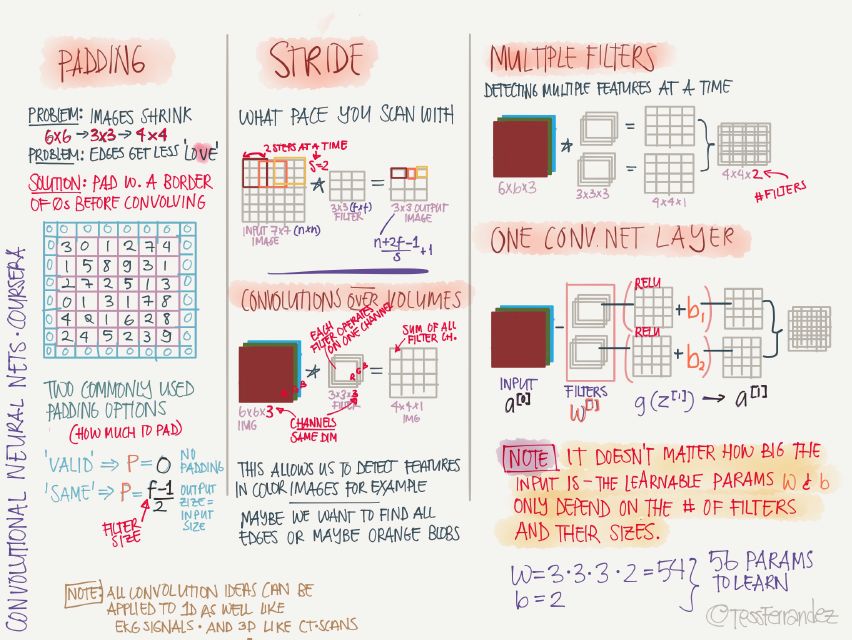 CONVOLUTIONAL NEURAL NETS · COURSERA
PADDING
PROBLEM: IMAGES SHRINK
6x6 → 3x3 → 4x4
PROBLEM: EDGES GET LESS 'LOVE'
SOLUTION: PAD W. A BORDER
OF 0s BEFORE CONVOLVING
0 0 0 0 0 0 0 0
0 3 0 1 2 7 4 0
0 1 5 8 9 3 1 0
0 2 7 2 5 1 3 0
0 0 1 3 1 7 8 0
0 4 2 1 6 2 8 0
0 2 4 5 2 3 9 0
0 0 0 0 0 0 0 0
TWO COMMONLY USED
PADDING OPTIONS
(HOW MUCH TO PAD)
'VALID' ⇒ P=0 NO
PADDING
'SAME' ⇒ P= f-1/2
OUTPUT
SIZE=
INPUT
SIZE
FILTER
SIZE
NOTE: ALL CONVOLUTION IDEAS CAN BE
APPLIED TO 1D AS WELL LIKE
EKG SIGNALS · AND 3D LIKE CT-SCANS
STRIDE
WHAT PACE YOU SCAN WITH
2 STEPS AT A TIME
S=2
* =
INPUT 7x7 (nxn)
IMAGE
3x3 (fxf)
FILTER
3x3 OUTPUT
IMAGE
n+2f-1/s +1
CONVOLUTIONS OVER VOLUMES
EACH
FILTER OPERATES
ON ONE CHANNEL
SUM OF ALL
FILTER CH.
R G B
* =
R G B
6x6x3
IMG
3x3x3
FILTER
4x4x1
IMG
CHANNELS
SAME DIM
THIS ALLOWS US TO DETECT FEATURES
IN COLOR IMAGES FOR EXAMPLE
MAYBE WE WANT TO FIND ALL
EDGES OR MAYBE ORANGE BLOBS
MULTIPLE FILTERS
DETECTING MULTIPLE FEATURES AT A TIME
* = =
6x6x3
3x3x3
4x4x1
4x4x2
# FILTERS
ONE CONV. NET LAYER
RELU
( + b1 )
RELU
( + b2 )
INPUT
a[0]
FILTERS
W[1]
g(z[1]) → a[1]
NOTE IT DOESN'T MATTER HOW BIG THE
INPUT IS - THE LEARNABLE PARAMS W & b
ONLY DEPEND ON THE # OF FILTERS
AND THEIR SIZES.
W=3·3·3·2=54
b=2
56 PARAMS
TO LEARN
@TessFerrandez